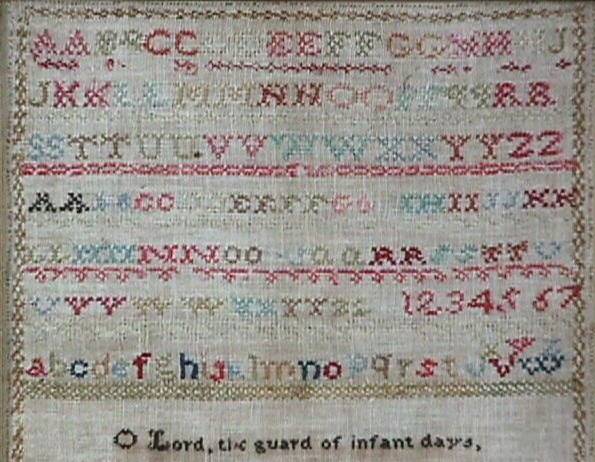 A A B B C C D D E E F F G G H H I J
J K K L L M M N N O O P P q q R R
S S T T U U V V W W X X Y Y Z Z
A A B B C C D D E E F F G G H H I I J J K K
L L M M N N O O Q Q R R S S T T U
U V V W W X X Y Y Z Z 1 2 3 4 5 6 7
a b c d e f g h i j k l m n o p q r s t u v w
O Lord, the guard of infant days,